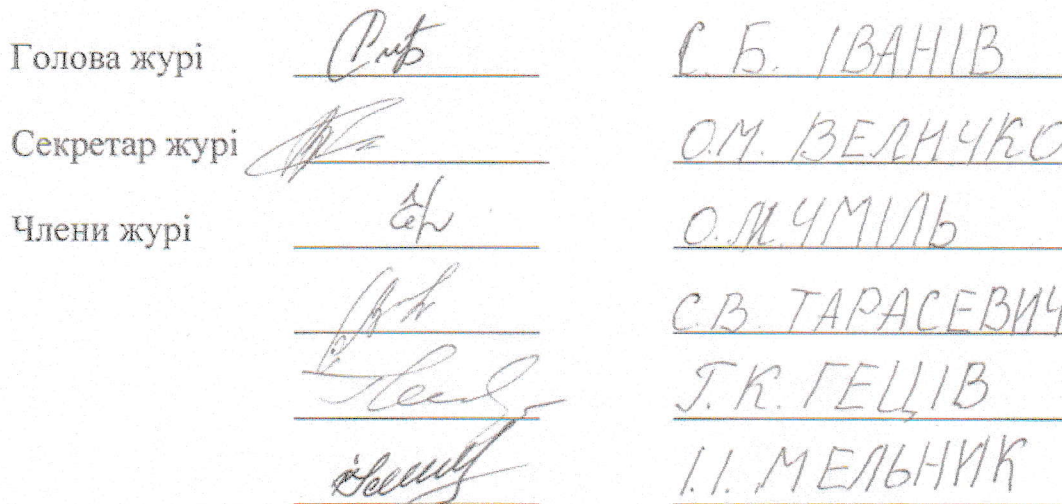 Голова журі С. Б. ІВАНІВ
Секретар журі О.М. ВЕЛИЧКО
Члени журі О.М. ЧМІЛЬ
С.В. ТАРАСЕВИЧ
Г.К. ГЕЦІВ
І.І. МЕЛЬНИК